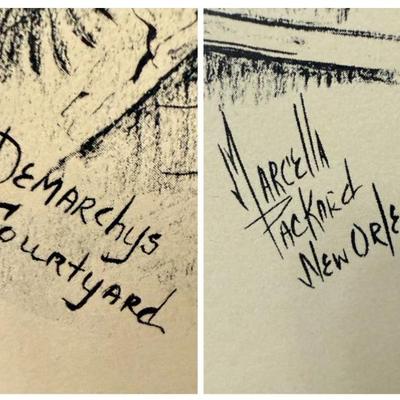 DEMARCHYS
COURTYARD
MARCELLA
PACKARD
NEW ORLE